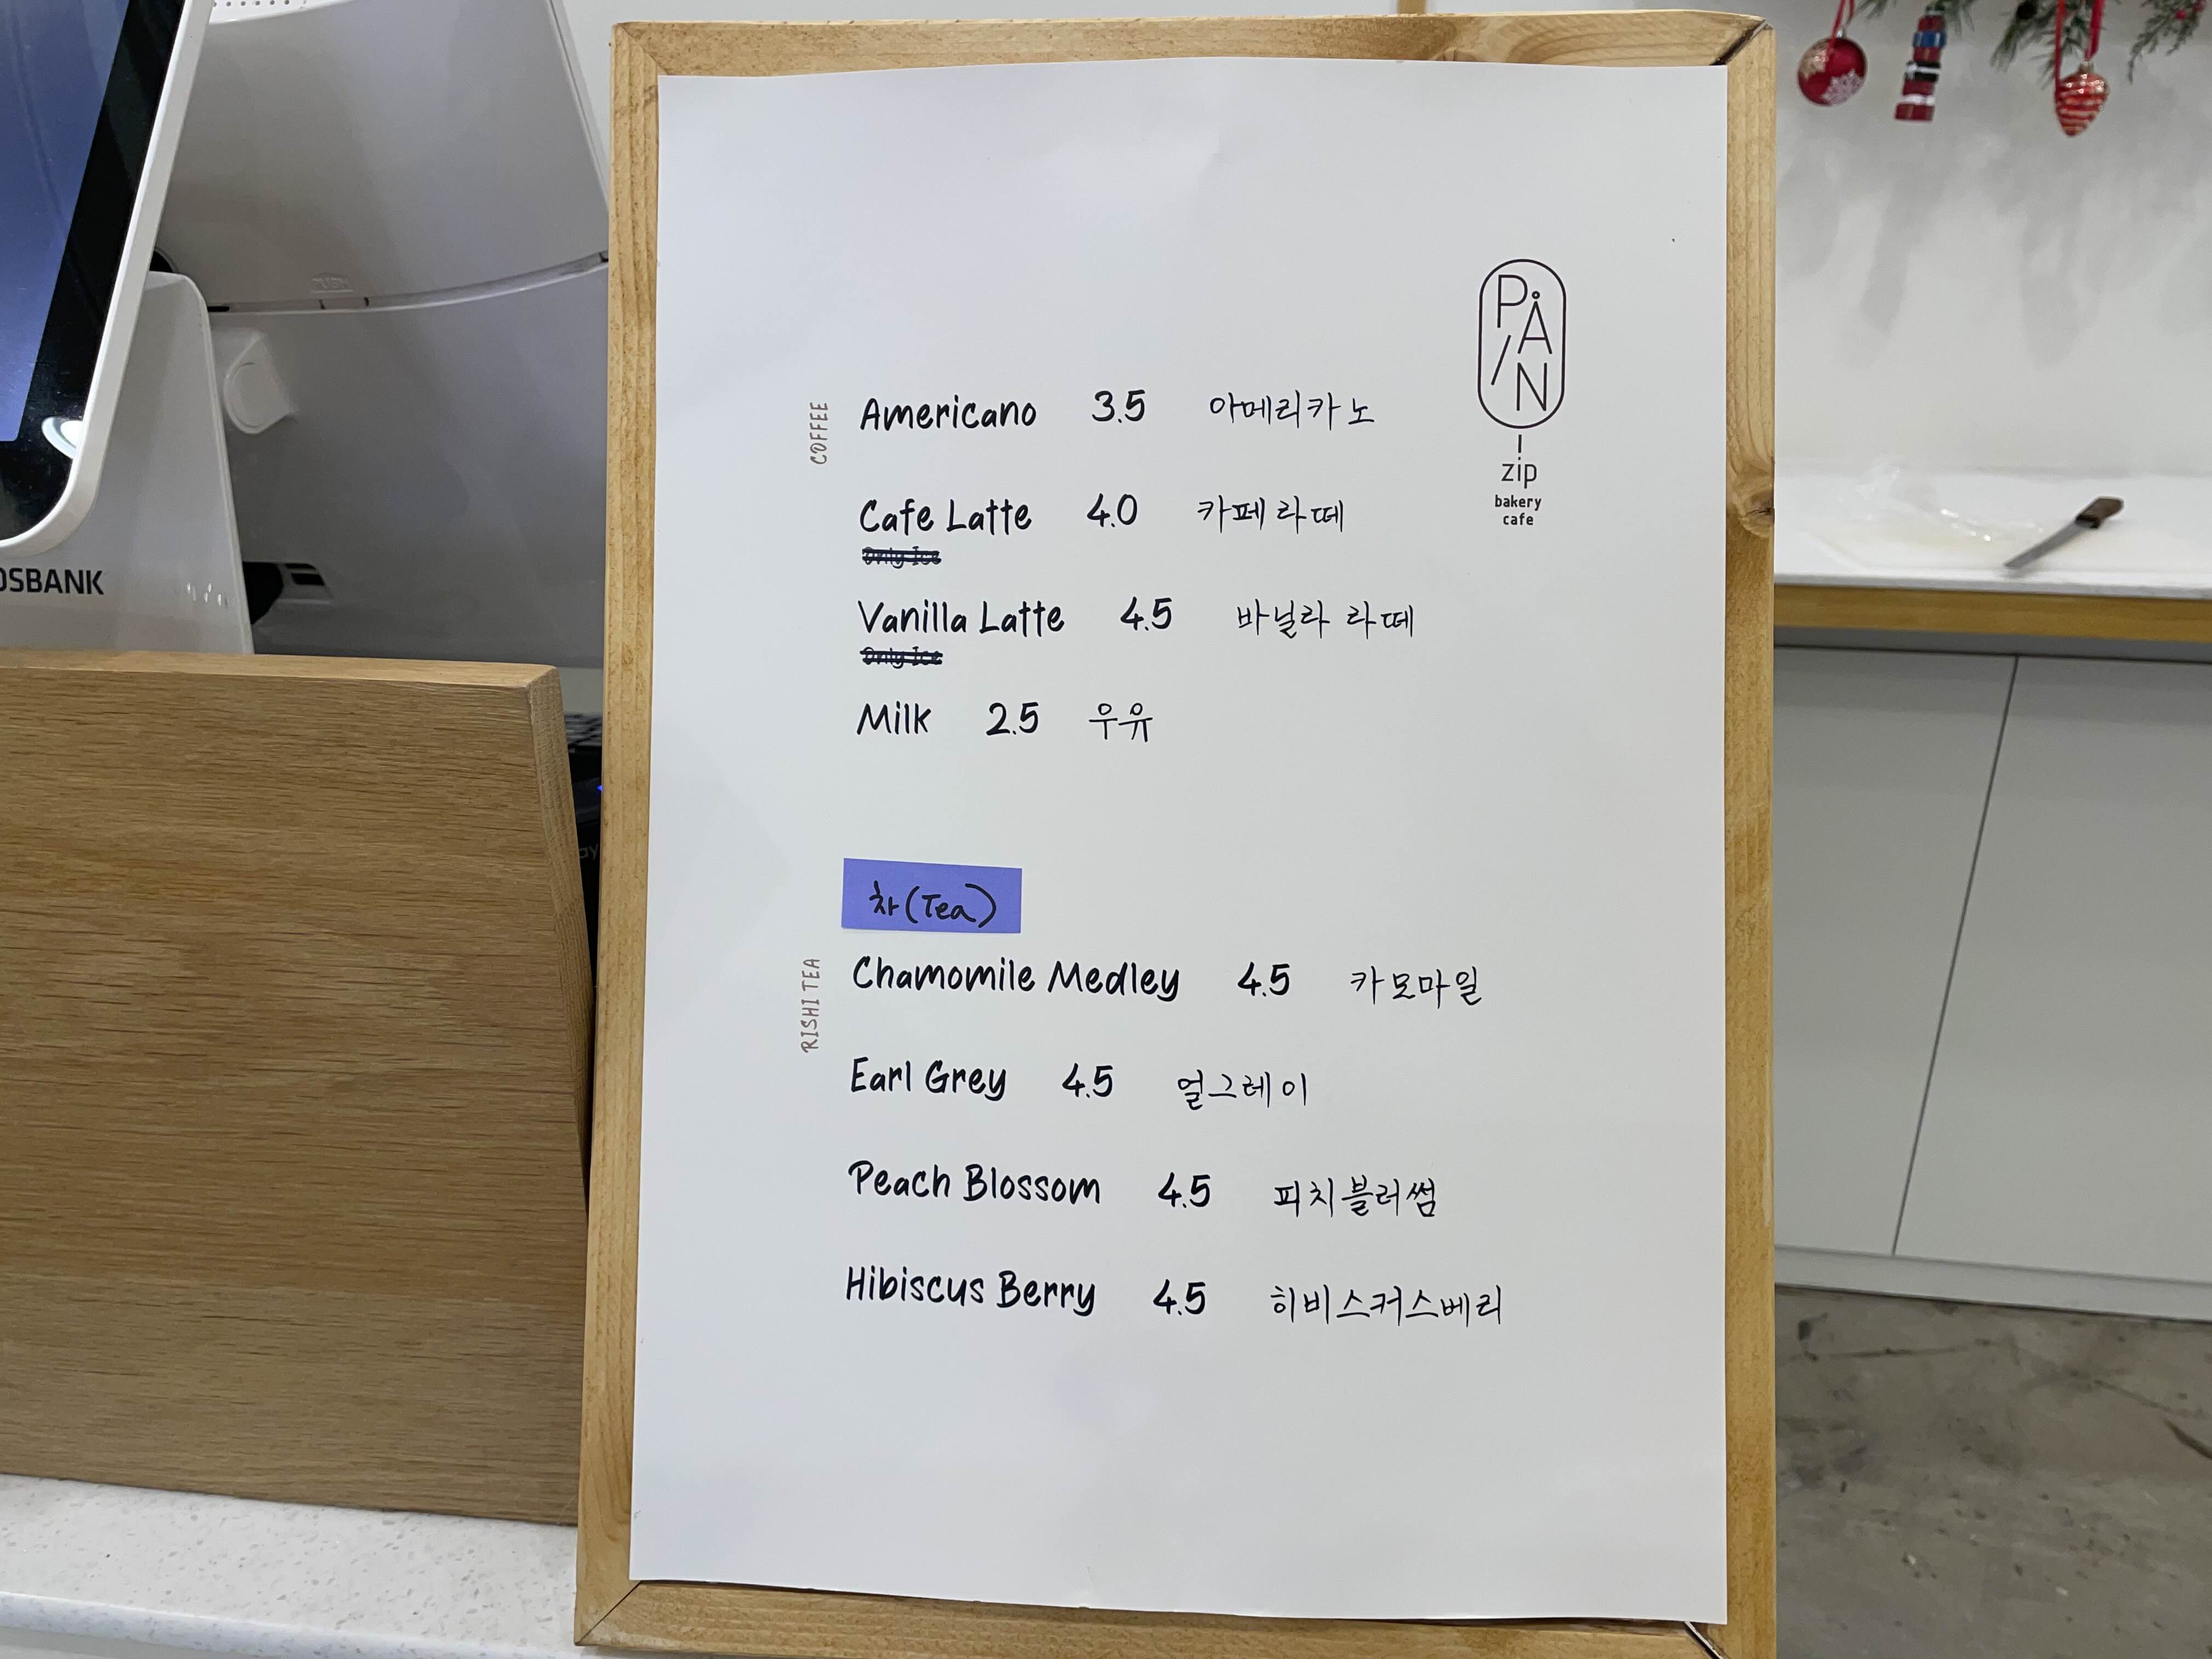 OSBANK
PUSH
PA/N
zip
bakery
cafe
COFFEE
Americano 3.5 아메리카노
Cafe Latte 4.0 카페라떼
Only Ice
Vanilla Latte 4.5 바닐라 라떼
Only Ice
Milk 2.5 우유
차(Tea)
RISHI TEA
Chamomile Medley 4.5 카모마일
Earl Grey 4.5 얼그레이
Peach Blossom 4.5 피치블러썸
Hibiscus Berry 4.5 히비스커스베리